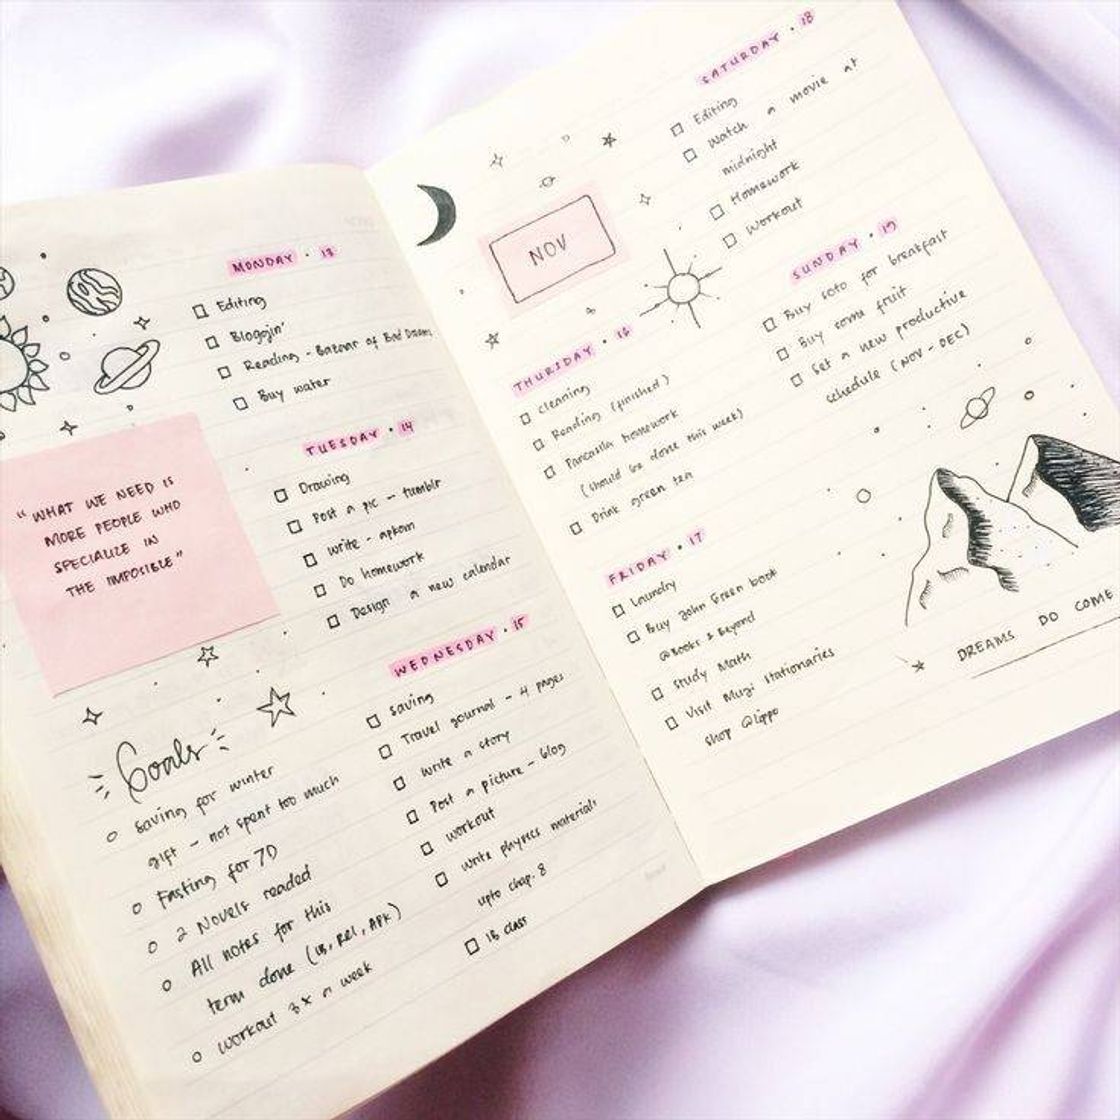 MONDAY · 13
Editing
Bloggin'
Reading - Bazaar of Bad Dreams
Buy water
"WHAT WE NEED IS
MORE PEOPLE WHO
SPECIALIZE IN
THE IMPOSIBLE"
TUESDAY · 14
Drawing
Post a pic - tumblr
Write - apkom
Do homework
Design a new calendar
WEDNESDAY · 15
saving
Travel journal - 4 pages
Write a story
Post a picture - blog
Workout
Write physics materials
upto chap. 8
IB class
Goals
saving for winter
gift - not spent too much
Fasting for 7D
2 Novels readed
All notes for this
term done (IB, Rel, APK)
Workout 3x a week
NOV
THURSDAY · 16
cleaning
Reading (finished)
Pancasila homework
(should be done this week)
Drink green tea
FRIDAY · 17
Laundry
Buy John Green book
@Books & Beyond
Study Math
Visit Muji stationaries
shop @lippo
SATURDAY · 18
Editing
Watch a movie at
midnight
Homework
Workout
SUNDAY · 19
Buy soto for breakfast
Buy some fruit
Set a new productive
schedule (NOV - DEC)
DREAMS DO COME